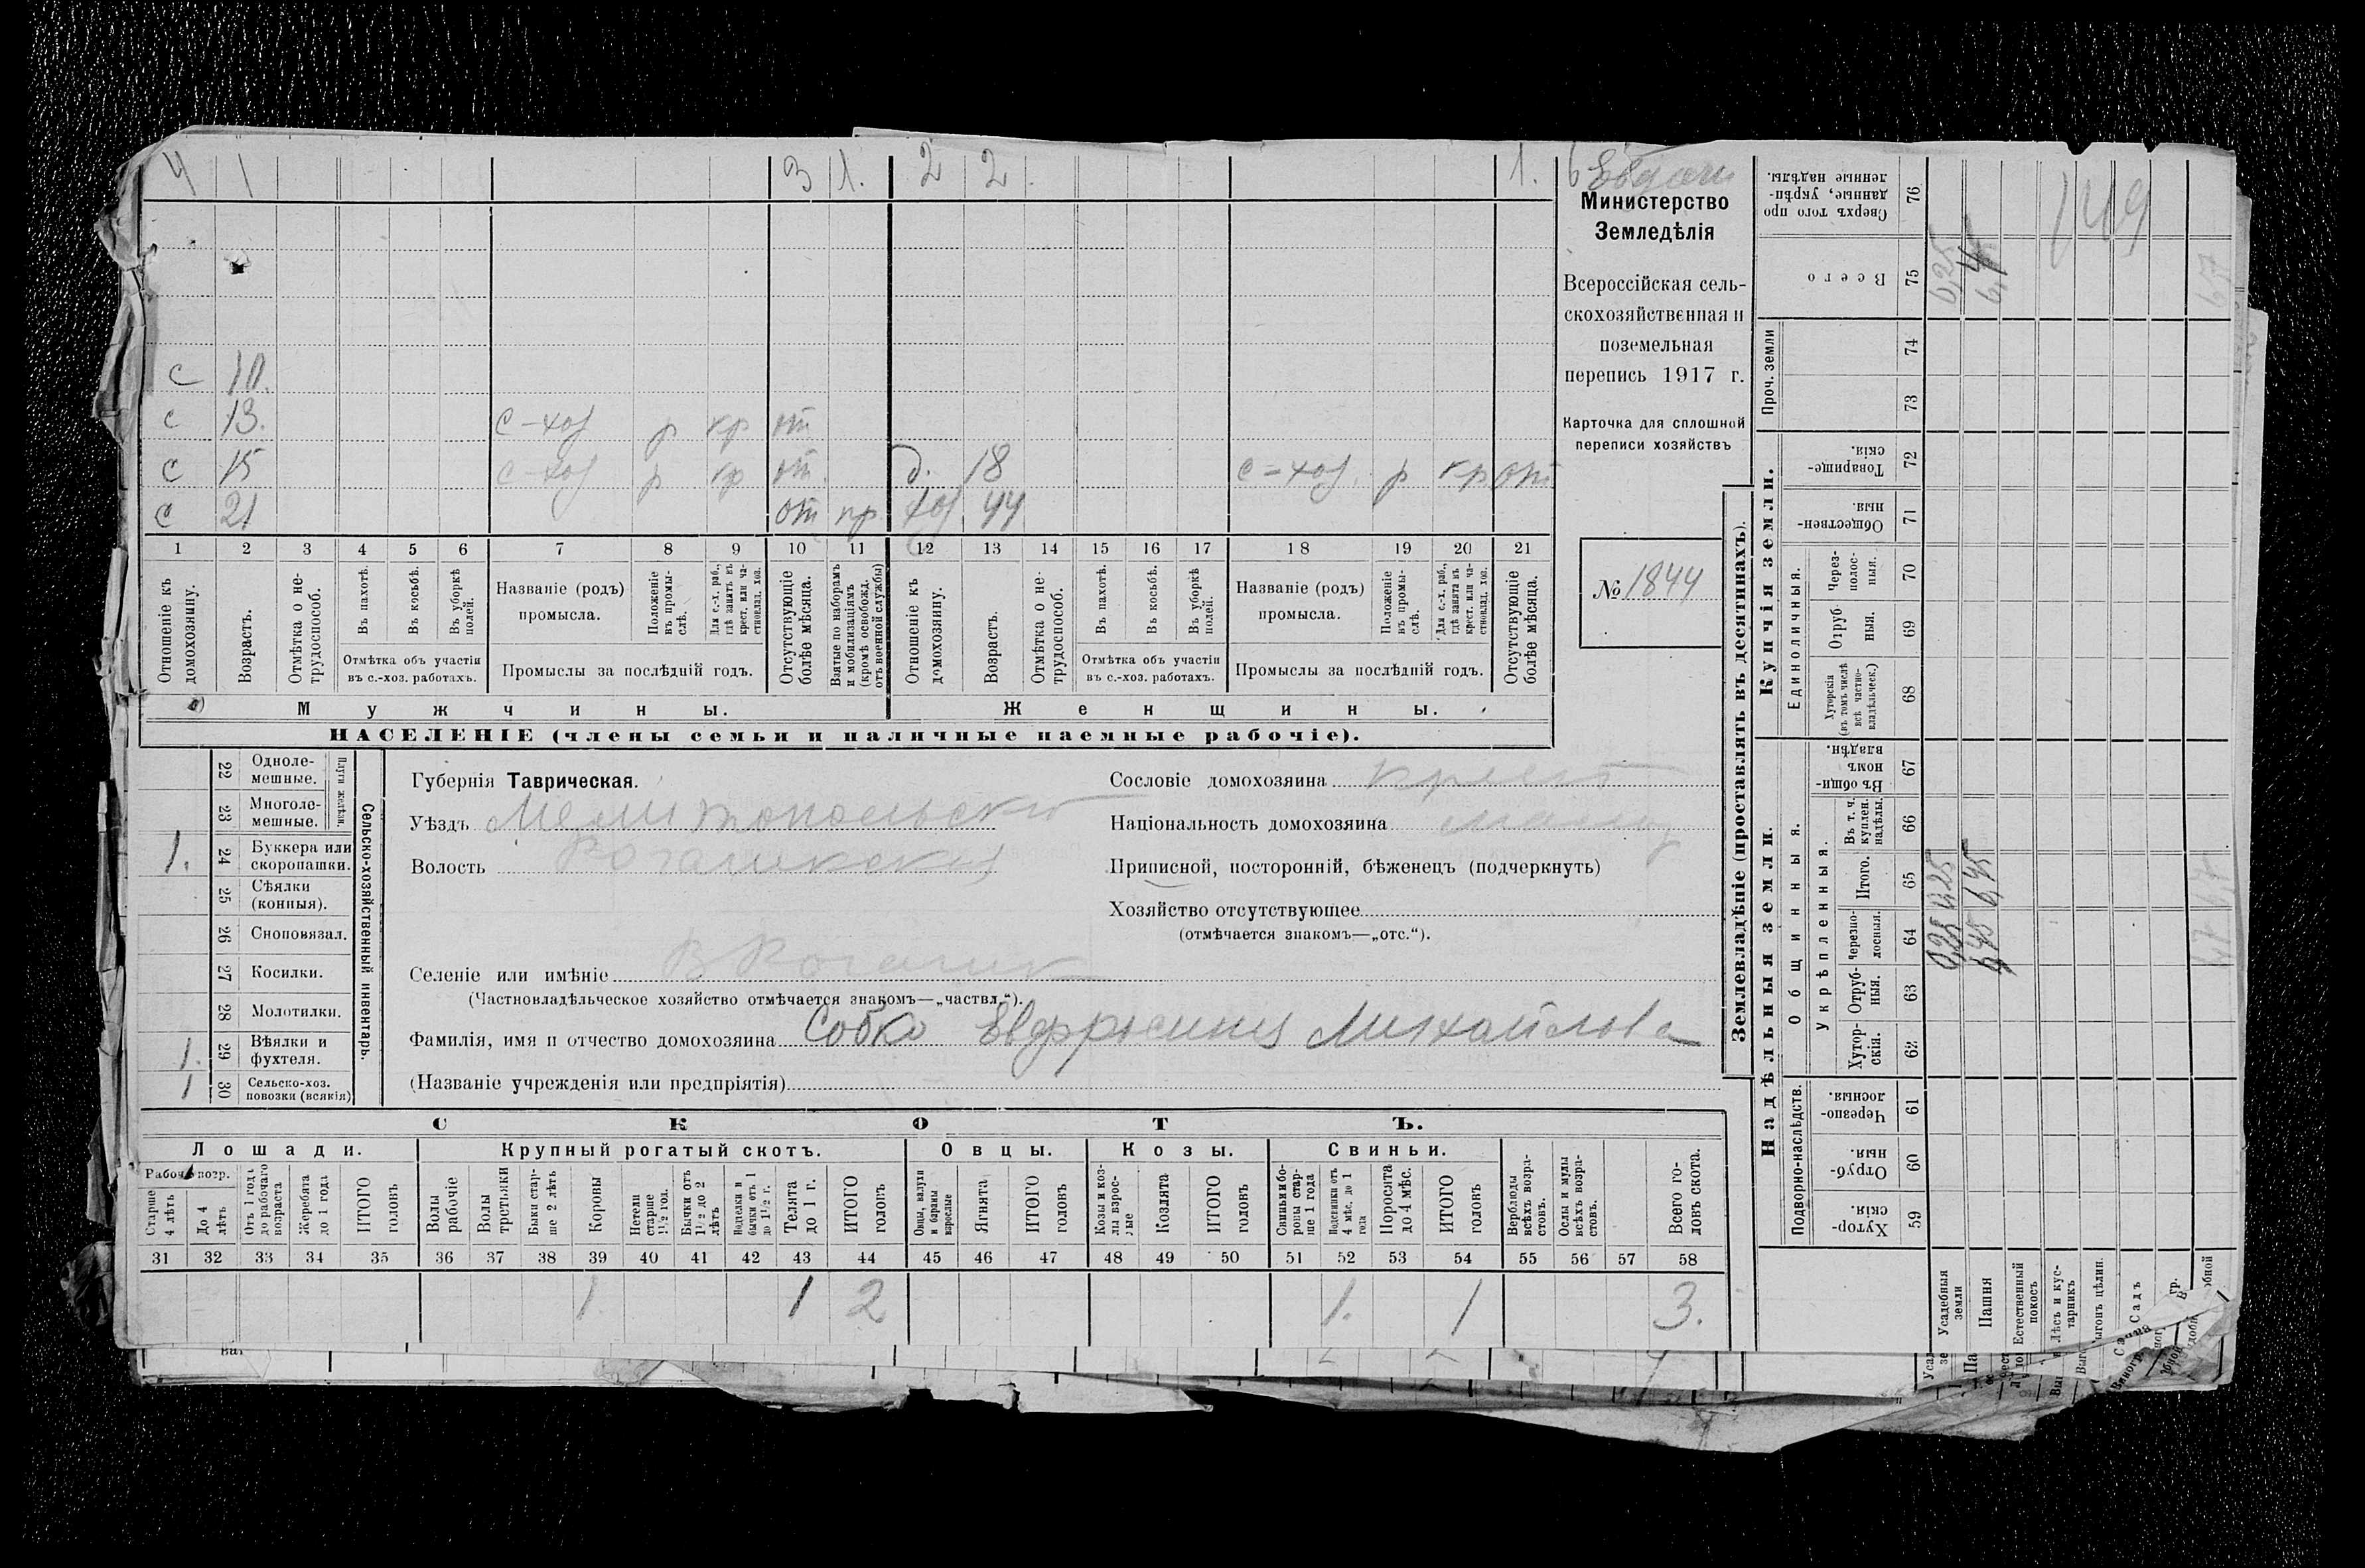 4 1 3 1. 2 2 1. 6
Министерство
Земледѣлія
Всероссійская сель-
скохозяйственная и
поземельная
перепись 1917 г.
Карточка для сплошной
переписи хозяйствъ
№ 1844
с 10.
с 13. с-хоз р кр от
с 15 с-хоз р кр от. д. 18 с-хоз. р кр от
с 21 от пр хоз. 44
1 2 3 4 5 6 7 8 9 10 11 12 13 14 15 16 17 18 19 20 21
Отношеніе къ домохозяину.
Возрастъ.
Отмѣтка о не-трудоспособ.
Въ пахотѣ.
Въ косьбѣ.
Въ уборкѣ полей.
Отмѣтка объ участіи
въ с.-хоз. работахъ.
Названіе (родъ)
промысла.
Положеніе въ промы-слѣ.
Для с.-х. раб., гдѣ занятъ въ крест. или ча-стновлад. хоз.
Промыслы за послѣдній годъ.
Отсутствующіе болѣе мѣсяца.
Взятые по наборамъ и мобилизаціямъ (кромѣ освобожд. отъ военной службы)
Отношеніе къ домохозяину.
Возрастъ.
Отмѣтка о не-трудоспособ.
Въ пахотѣ.
Въ косьбѣ.
Въ уборкѣ полей.
Отмѣтка объ участіи
въ с.-хоз. работахъ.
Названіе (родъ)
промысла.
Положеніе въ промы-слѣ.
Для с.-х. раб., гдѣ занята въ крест. или ча-стновлад. хоз.
Промыслы за послѣдній годъ.
Отсутствующіе болѣе мѣсяца.
Мужчины. Женщины.
НАСЕЛЕНІЕ (члены семьи и наличные наемные рабочіе).
22 Одноле-мешные.
23 Многоле-мешные.
Плуги желѣзн.
1. 24 Буккера или скоропашки.
25 Сѣялки (конныя).
26 Сноповязал.
27 Косилки.
28 Молотилки.
1. 29 Вѣялки и фухтеля.
1 30 Сельско-хоз. повозки (всякія)
Сельско-хозяйственный инвентарь.
Губернія Таврическая.
Уѣздъ Мелитопольскій
Волость Рогачикская
Селеніе или имѣніе В Рогачик
(Частновладѣльческое хозяйство отмѣчается знакомъ—„частвл.“).
Фамилія, имя и отчество домохозяина Собко Евфросиния Михайлова
(Названіе учрежденія или предпріятія)
Сословіе домохозяина крест
Національность домохозяина
Приписной, посторонній, бѣженецъ (подчеркнуть)
Хозяйство отсутствующее
(отмѣчается знакомъ—„отс.“).
СКОТЪ.
Лошади. Крупный рогатый скотъ. Овцы. Козы. Свиньи.
Рабоч. возр.
Старше 4 лѣтъ
До 4 лѣтъ
Отъ 1 года до рабочаго возраста
Жеребята до 1 года
ИТОГО головъ
Волы рабочіе
Волы третьяки
Быки стар-ше 2 лѣтъ
Коровы
Нетели старше 1½ год.
Бычки отъ 1½ до 2 лѣтъ
Подтелки и бычки отъ 1 до 1½ г.
Телята до 1 г.
ИТОГО головъ
Овцы, валухи и бараны взрослые
Ягнята
ИТОГО головъ
Козы и коз-лы взрос-лые
Козлята
ИТОГО головъ
Свиньи и бо-ровы стар-ше 1 года
Подсвинки отъ 4 мѣс. до 1 года
Поросята до 4 мѣс.
ИТОГО головъ
Верблюды всѣхъ возра-стовъ.
Ослы и мулы всѣхъ возра-стовъ.
Всего го-ловъ скота.
31 32 33 34 35 36 37 38 39 40 41 42 43 44 45 46 47 48 49 50 51 52 53 54 55 56 57 58
1 1 2 1. 1 3.
Землевладѣніе (проставлять въ десятинахъ).
Надѣльныя земли. Купчія земли. Проч. земли
Подворно-наслѣдств. Общинныя. Единоличныя.
Укрѣпленныя.
Хутор-скія. 59
Отруб-ныя. 60
Черезпо-лосныя. 61
Хутор-скія. 62
Отруб-ныя. 63
Черезпо-лосныя. 64
Итого. 65
Въ т. ч. куплен. надѣлы. 66
Въ общи-номъ владѣн. 67
Хуторскія (въ томъ числѣ всѣ частно-владѣльческ.) 68
Отруб-ныя. 69
Через-полос-ныя. 70
Обществен-ныя. 71
Товарище-скія. 72
73
74
Всего 75
Сверхъ того про-данные, укрѣп-ленные надѣлы. 76
Усадебныя земли 0,25 0,25 0,25
Пашня 6,45 6,45 6,45
Естественный покосъ
Лѣсъ и кус-тарникъ
Садъ
149